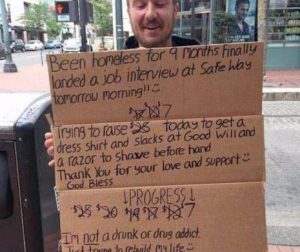 Been homeless for 9 months finally
landed a job interview at Safe Way
tomorrow morning!!
7
Trying to raise $25 today to get a
dress shirt and slacks at Good Will and
a razor to shave before hand
Thank you for your love and support
God Bless
↓PROGRESS↓
$25 $20 7
I'm not a drunk or drug addict.
Just trying to rebuild my life